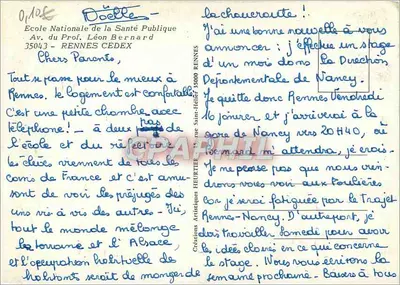 0,10€
Doëlle
Ecole Nationale de la Santé Publique
Av. du Prof. Léon Bernard
35043 - RENNES CEDEX
Chers Parents,
Tout se passe pour le mieux à
Rennes, le logement est confortable
C'est une petite chambre avec
téléphone! - à deux pas de
l'école et du
les élèves viennent de tous les
coins de France et c'est amu-
sant de voir les préjugés des
uns vis à vis des autres - J'ai
tout le monde mélange
la Lorraine et l'Alsace,
et l'occupation habituelle des
habitants serait de manger de
Créations Artistiques HEURTIER - Rue Saint-Hélier 35000 RENNES
la choucroute!
J'ai une bonne nouvelle à vous
annoncer : j'effectue un stage
d'un mois dans la Direction
Départementale de
Nancy.
Je quitte donc Rennes Vendredi
10 janvier et j'arriverai à la
gare de Nancy vers 20H40, où
m'attendra, je crois -
Je ne pense pas que nous vien-
drons vous voir aux
car je serai fatiguée par le Trajet
Rennes-Nancy. D'autre part, je
dois travailler Samedi pour avoir
les idées claires en ce qui concerne
le stage. Nous vous écrirons la
semaine prochaine - Baisers à tous